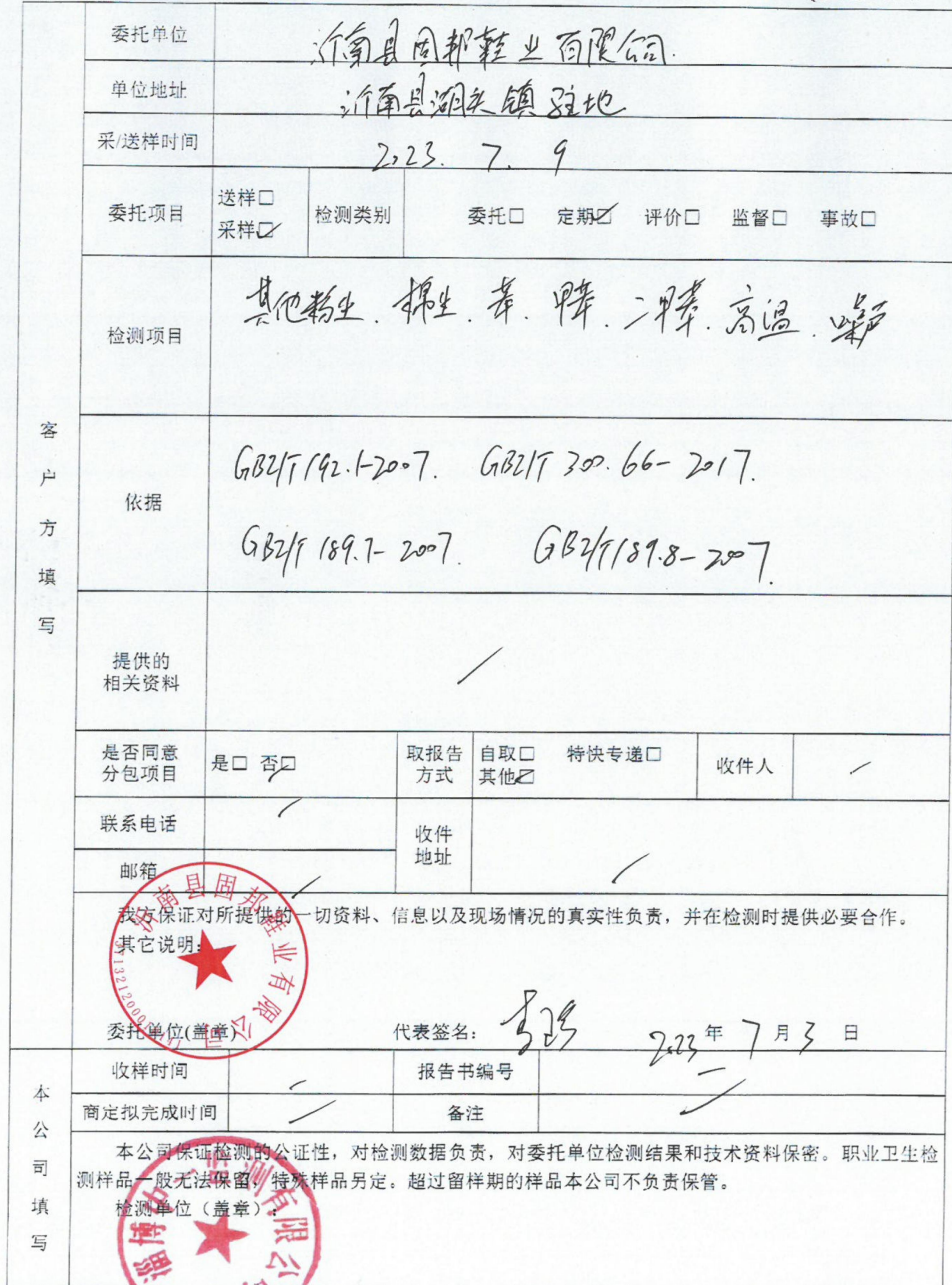 委托单位 沂南县固邦鞋业有限公司.
单位地址 沂南县湖头镇驻地
采/送样时间 2023. 7. 9
委托项目 送样□ 采样☑ 检测类别 委托□ 定期☑ 评价□ 监督□ 事故□
检测项目 其他粉尘、棉尘、苯、甲苯、二甲苯、高温、噪声
客户方填写
依据 GBZ/T 192.1-2007. GBZ/T 300.66-2017.
GBZ/T 189.7-2007. GBZ/T 189.8-2007.
提供的
相关资料 /
是否同意
分包项目 是□ 否☑ 取报告
方式 自取□ 特快专递□
其他☑ 收件人 /
联系电话 / 收件
地址 /
邮箱 /
我方保证对所提供的一切资料、信息以及现场情况的真实性负责，并在检测时提供必要合作。
其它说明：
沂南县固邦鞋业有限公司
委托单位(盖章) 代表签名： 2023 年 7 月 3 日
本公司填写
收样时间 / 报告书编号 /
商定拟完成时间 / 备注 /
本公司保证检测的公证性，对检测数据负责，对委托单位检测结果和技术资料保密。职业卫生检
测样品一般无法保留，特殊样品另定。超过留样期的样品本公司不负责保管。
检测单位（盖章）：
淄博 测有限公